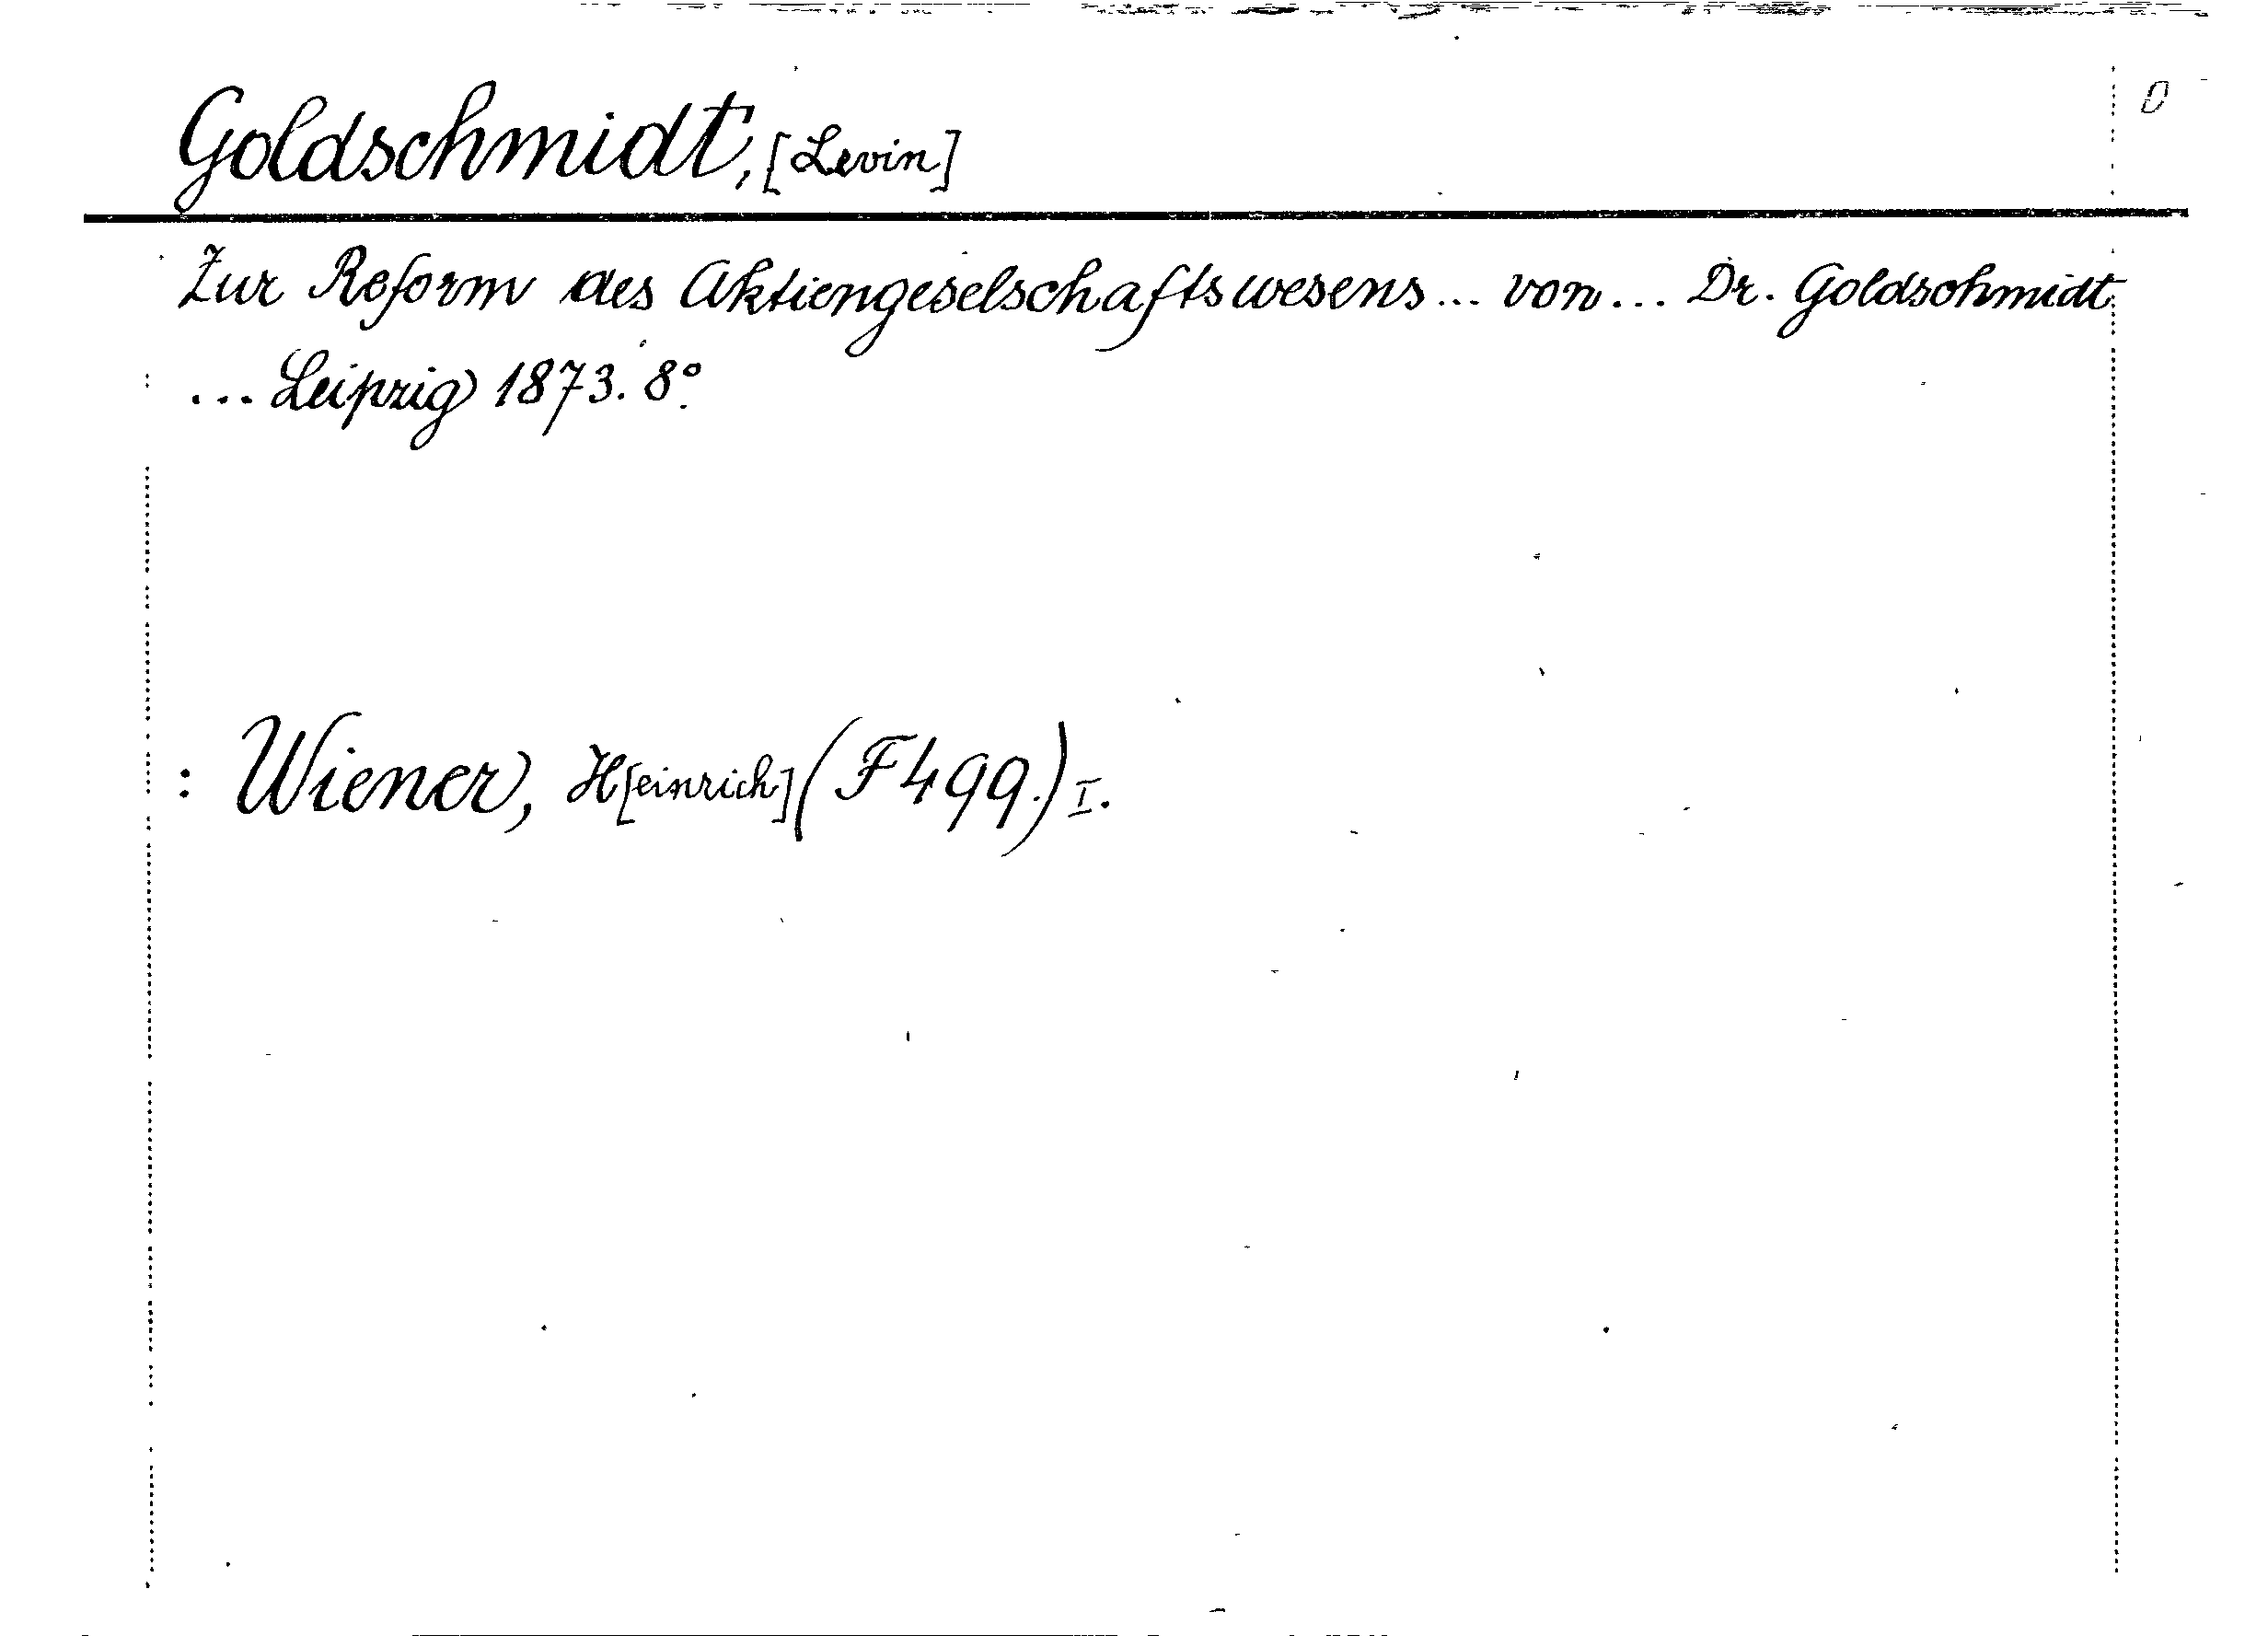 Goldschmidt, [Levin]
D
Zur Reform des Aktiengeselschaftswesens... von... Dr. Goldschmidt
... Leipzig 1873. 8º.
: Wiener, H[einrich] (F499.) I.